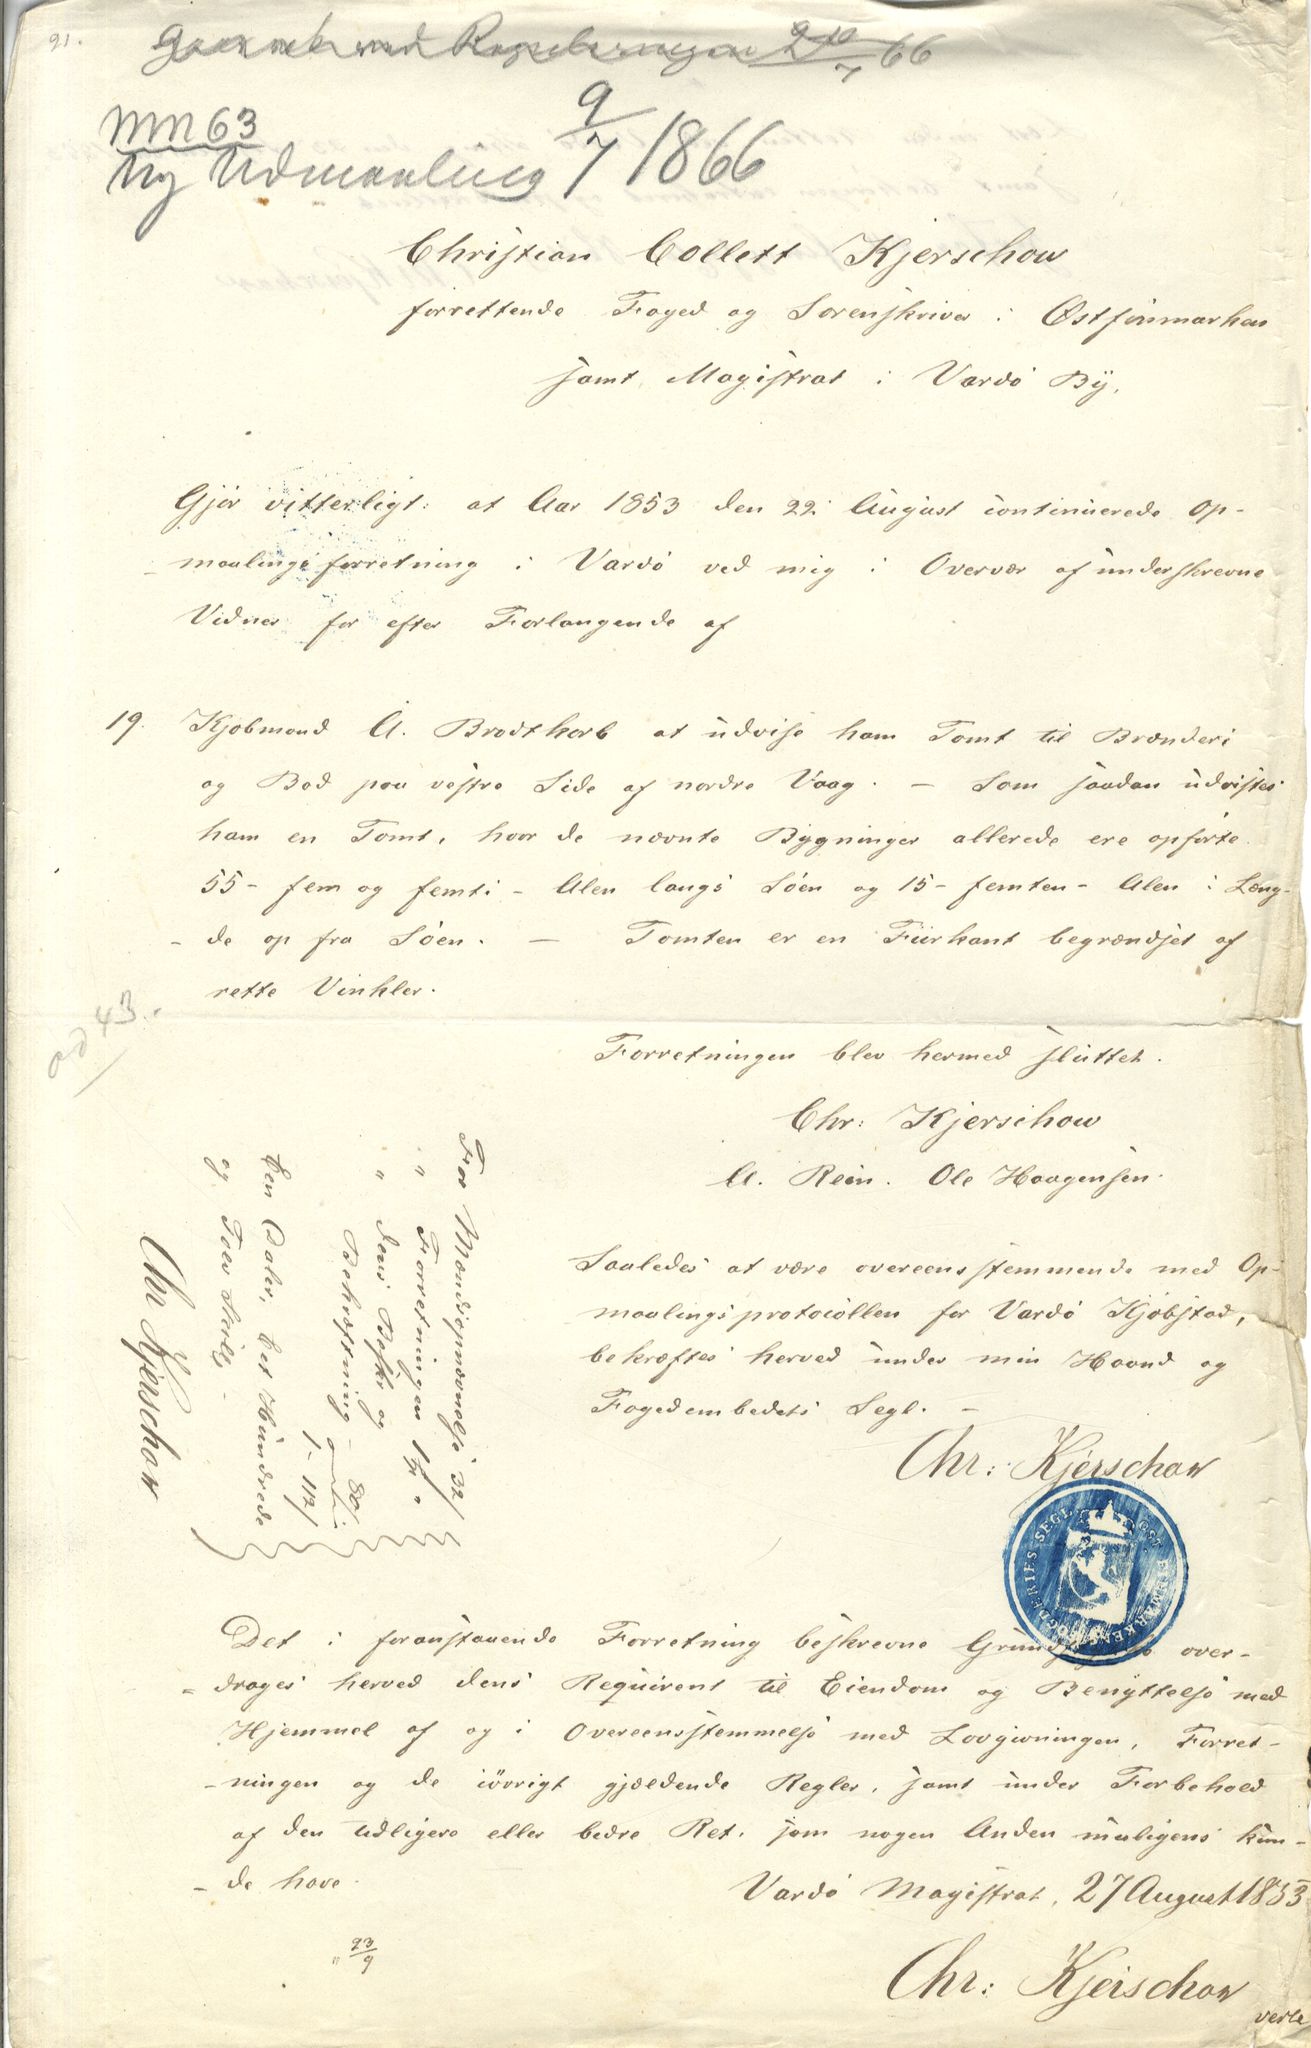 91.
MN 63
Ny Udmaaling 9/7 1866
Christian Collett Kjerschow
forrettende Foged og Sorenskriver i Østfinmarken
samt Magistrat i Vardö By,
Gjör vitterligt: at Aar 1853 den 22 August continuerede Op-
-maalingsforretning i Vardö ved mig i Overvær af underskrevne
Vidner for efter Forlangende af
19. Kjöbmand A. Brodtkorb at udvise ham Tomt til Brænderi
og Bod paa vestre Side af nordre Vaag. - Som saadan udvistes
ham en Tomt, hvor de nævnte Bygninger allerede ere opförte
55 - fem og femti - Alen langs Söen og 15 - femten - Alen i Læng-
-de op fra Söen. - Tomten er en Fiirkant begrændset af
rette Vinkler.
ad 43.
Forretningen blev hermed sluttet.
Chr: Kjerschow
A. Rein. Ole Haagensen.
Saaledes at være overeensstemmende med Op-
maalingsprotocollen for Vardö Kjöbstad,
bekræftes herved under min Haand og
Fogedembedets Segl. -
Chr: Kjerschow
For Mændsopnævnelse 32/
" Forretningen 1
" dens Beskr og
Bekræftning - 80/
1 - 112/
Een Daler, Eet Hundrede
og Tolv Skill.
Chr Kjerschow
OST FINMARKENS FOGDERIES SEGL
Det i foranstaaende Forretning beskrevne over-
-drages herved dens Requirent til Eiendom og Benyttelse med
Hjemmel af og i Overeensstemmelse med Lovgivningen, Forret-
-ningen og de iövrigt gjældende Regler, samt under Forbehold
af den tidligere eller bedre Ret, som nogen Anden muligens kun-
-de have.
Vardö Magistrat, 27 August 1853
" 23/9
Chr: Kjerschow
verte